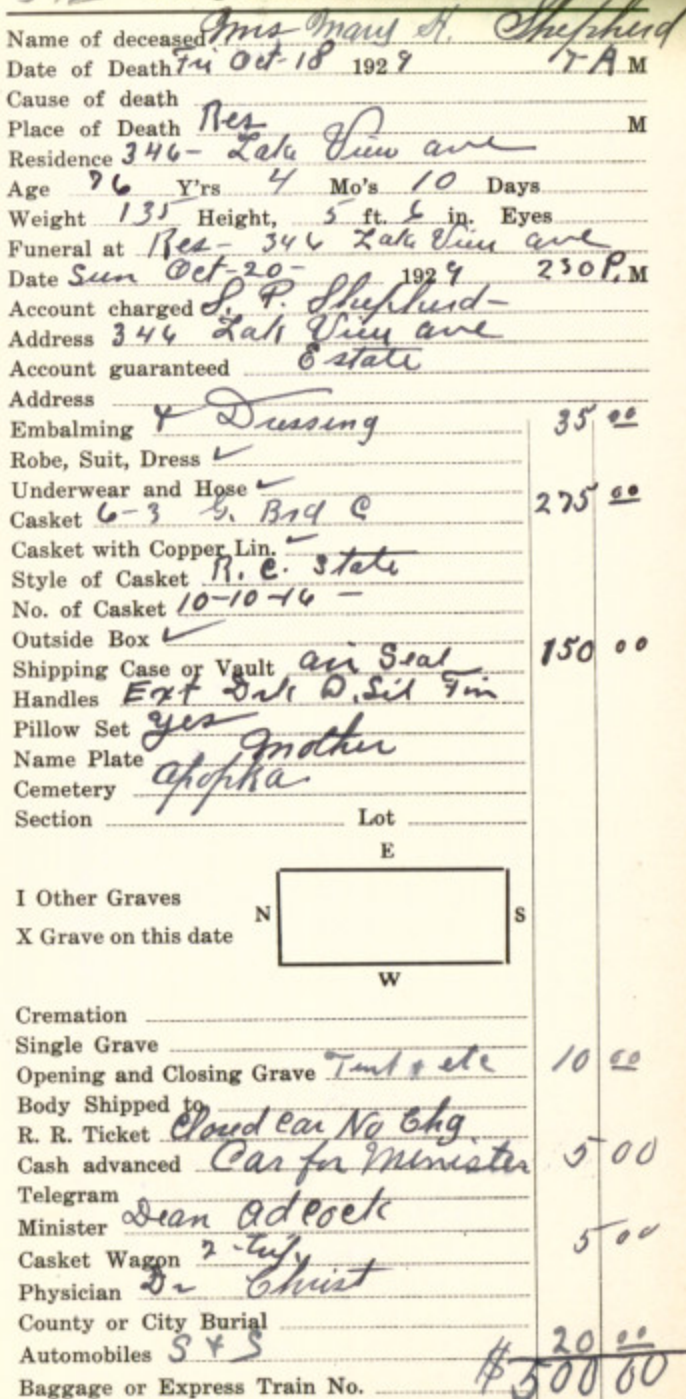 Name of deceased Mrs Mary H. Shepherd
Date of Death Fri Oct-18 1929 7 A M
Cause of death
Place of Death Res M
Residence 346- Lake View ave
Age 76 Y'rs 4 Mo's 10 Days
Weight 135 Height, 5 ft. 6 in. Eyes
Funeral at Res- 346 Lake View ave
Date Sun Oct-20- 1929 230 P. M
Account charged S. P. Shepherd-
Address 346 Lak View ave
Account guaranteed Estate
Address
Embalming & Dressing 35 00
Robe, Suit, Dress ✓
Underwear and Hose ✓
Casket 6-3 G. Brd C 275 00
Casket with Copper Lin. ✓
Style of Casket R. C. State
No. of Casket 10-10-16 -
Outside Box ✓
Shipping Case or Vault air Seal 150 00
Handles Ext D. Sil Fin
Pillow Set yes
Name Plate Mother
Cemetery Apopka
Section Lot
E
I Other Graves
N S
X Grave on this date
W
Cremation
Single Grave
Opening and Closing Grave Tent & etc 10 00
Body Shipped to
R. R. Ticket Closed Car No Chg
Cash advanced Car for Minister 5 00
Telegram
Minister Dean Adcock
Casket Wagon 5 00
Physician Dr Christ
County or City Burial
Automobiles S & S 20 00
Baggage or Express Train No. $ 500 00